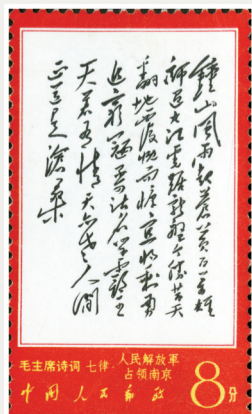 鍾山風雨起蒼黄百万雄
師过大江虎踞龍盤今勝昔天
翻地覆慨而慷宜將剩勇
追窮寇不可沽名学霸王
天若有情天亦老人間
正道是滄桑
毛主席诗词 七律·人民解放軍
占领南京
中国人民邮政
8分